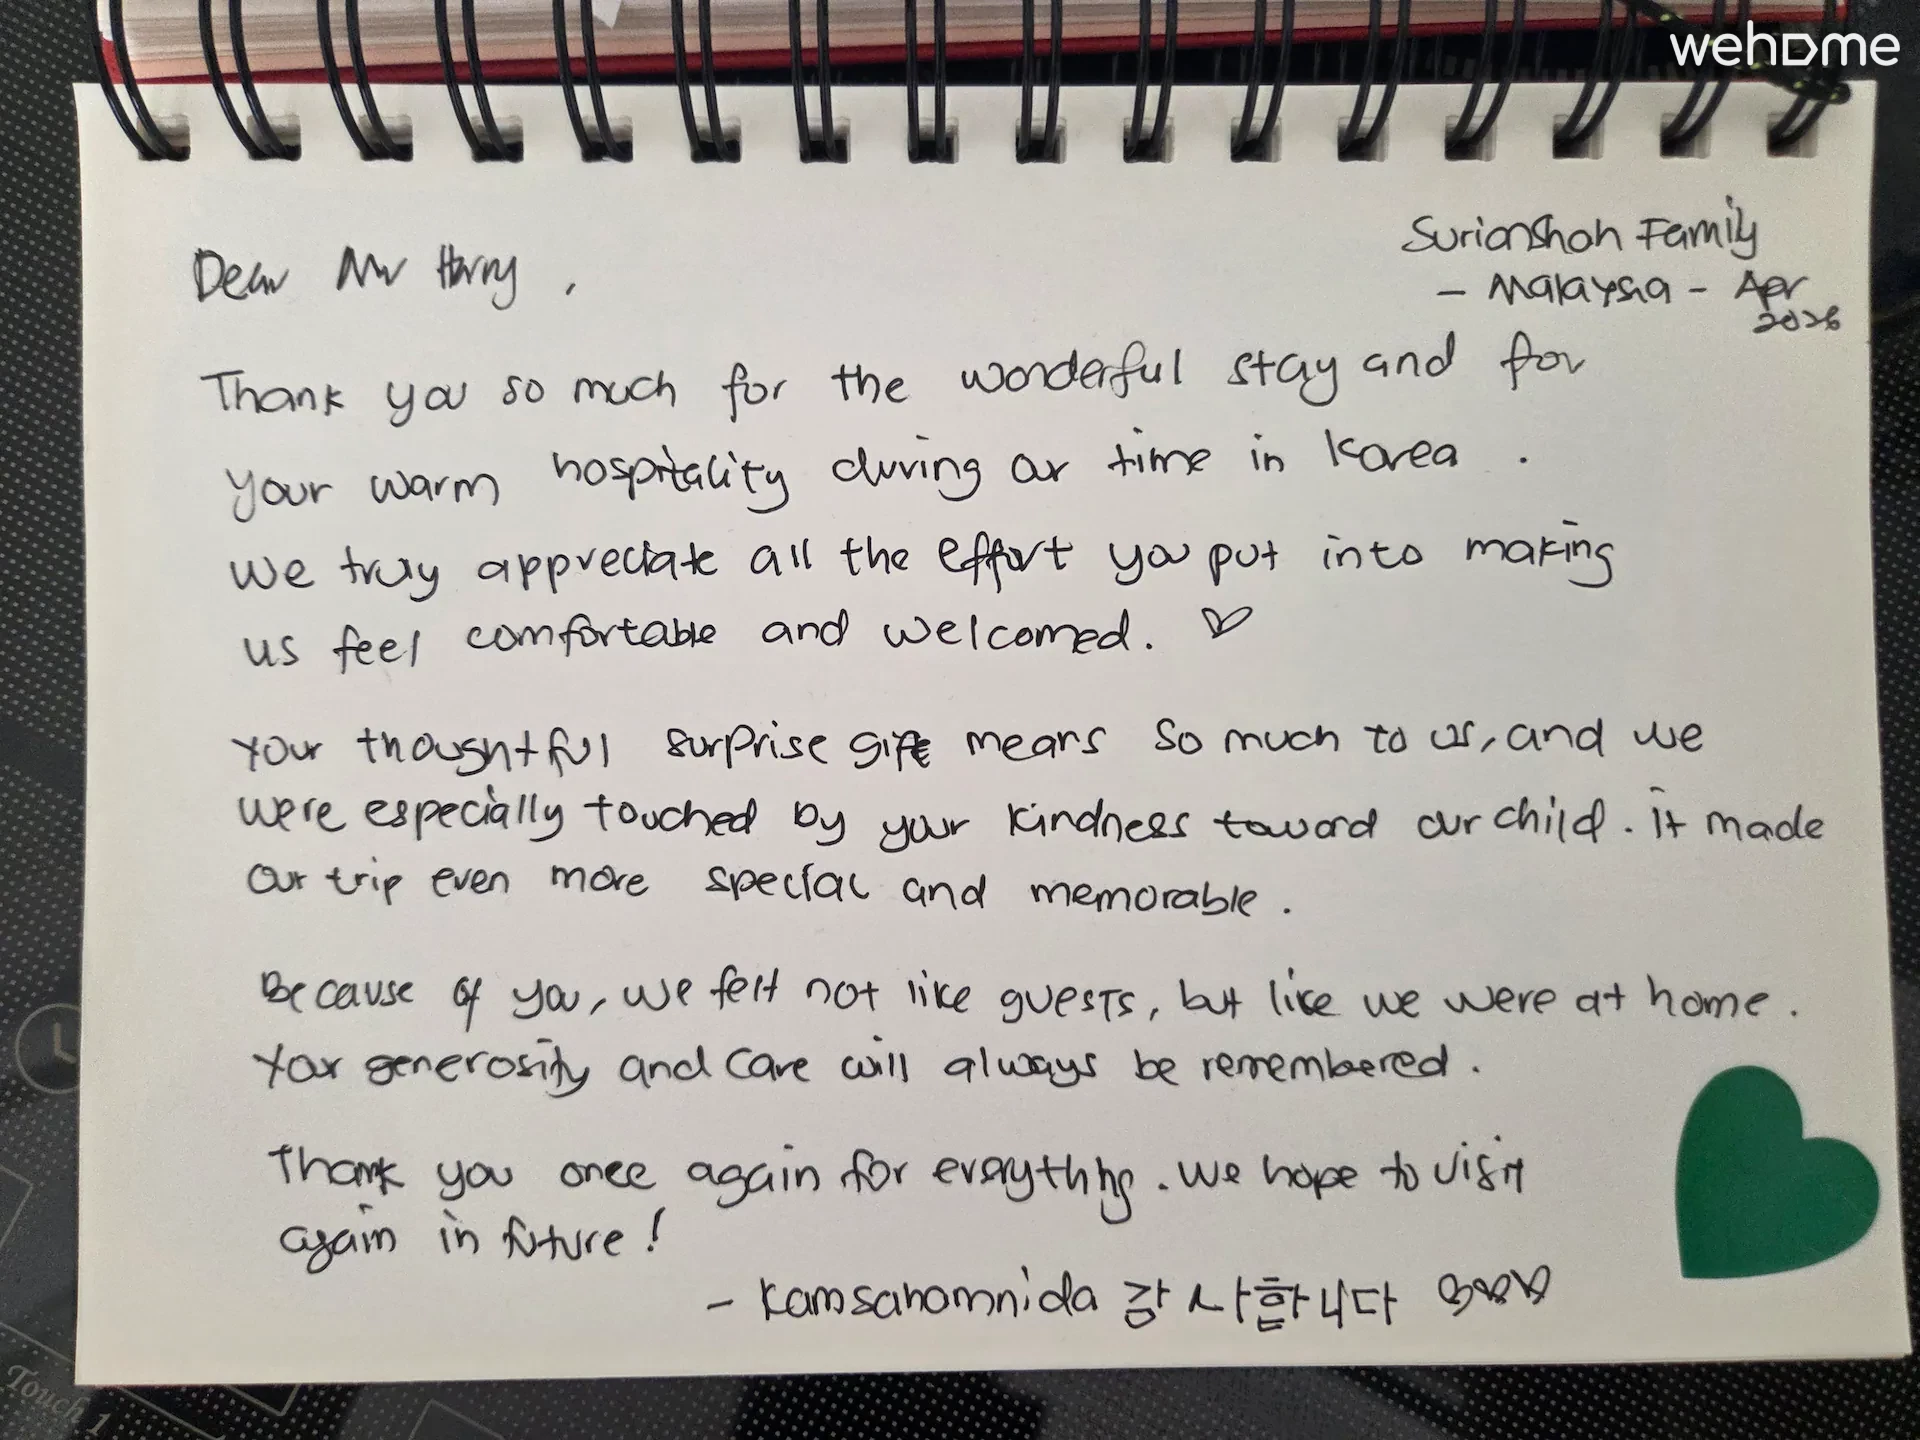 wehome
Surianshah Family
- Malaysia - Apr
2026
Dear Mr Harry,
Thank you so much for the wonderful stay and for
your warm hospitality during our time in Korea.
We truly appreciate all the effort you put into making
us feel comfortable and welcomed. ♡
Your thoughtful surprise gift means so much to us, and we
were especially touched by your kindness toward our child. it made
our trip even more special and memorable.
Because of you, we felt not like guests, but like we were at home.
Your generosity and care will always be remembered.
Thank you once again for everything. We hope to visit
again in future!
- Kamsahamnida 감사합니다 ♡♡♡
Touch 1